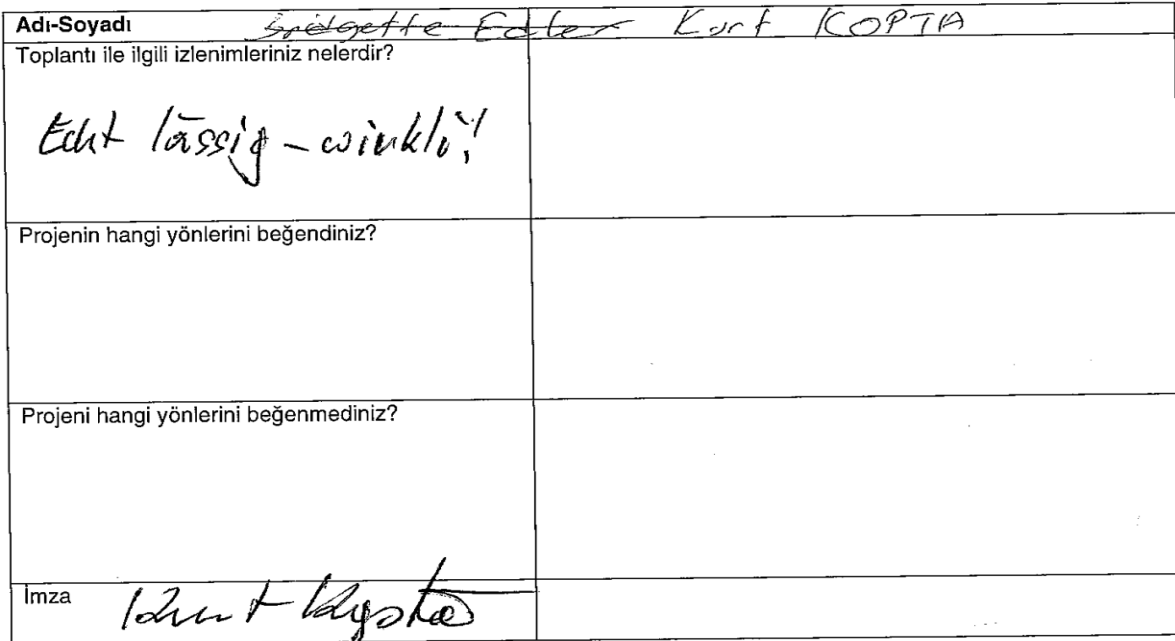 Adı-Soyadı Bridgette Edler Kurt KOPTA
Toplantı ile ilgili izlenimleriniz nelerdir?
Echt lässig - wirkli!
Projenin hangi yönlerini beğendiniz?
Projeni hangi yönlerini beğenmediniz?
İmza Kurt Kopta